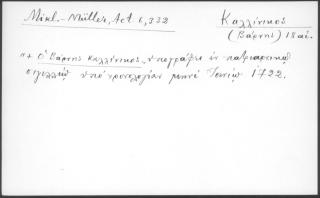 Mikl.-Müller, Act. 1,332
Καλλίνικος
(Βάρνης) 18 αἰ.
"+ ὁ Βάρνης Καλλίνικος" ὑπογράφει ἐν πατριαρχικῷ
σιγιλλίῳ ὑπὸ χρονολογίαν μηνὶ Ἰουνίῳ 1722.